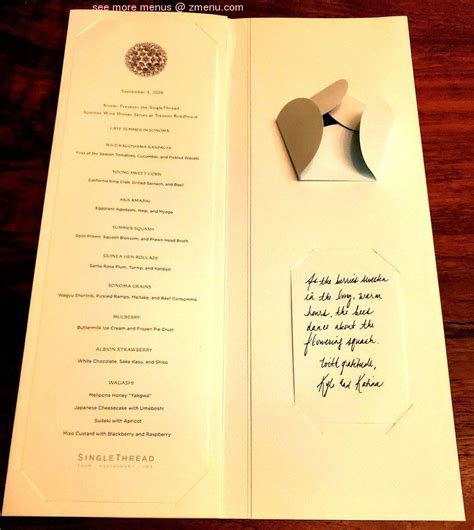 see more menus @ zmenu.com
September 3, 2020
Kistler Presents the SingleThread
Summer Wine Dinner Series at Trenton Roadhouse
LATE SUMMER IN SONOMA
WILD KAGOSHIMA KANPACHI
First of the Season Tomatoes, Cucumber, and Pickled Wasabi
YOUNG SWEET CORN
California King Crab, Grilled Spinach, and Basil
AKA AMADAI
Eggplant Agedashi, Negi, and Myoga
SUMMER SQUASH
Spot Prawn, Squash Blossom, and Prawn Head Broth
GUINEA HEN ROULADE
Santa Rosa Plum, Turnip, and Kanjyo
SONOMA GRAINS
Wagyu Shortrib, Pickled Ramps, Maitake, and Beef Consomme
MULBERRY
Buttermilk Ice Cream and Frozen Pie Crust
ALBION STRAWBERRY
White Chocolate, Sake Kasu, and Shiso
WAGASHI
Melipona Honey "Yakgwa"
Japanese Cheesecake with Umeboshi
Suiteki with Apricot
Miso Custard with Blackberry and Raspberry
SINGLETHREAD
FARM RESTAURANT INN
As the berries sweeten
in the long, warm
hours, the bees
dance about the
flowering squash.
With gratitude,
Kyle and Katina